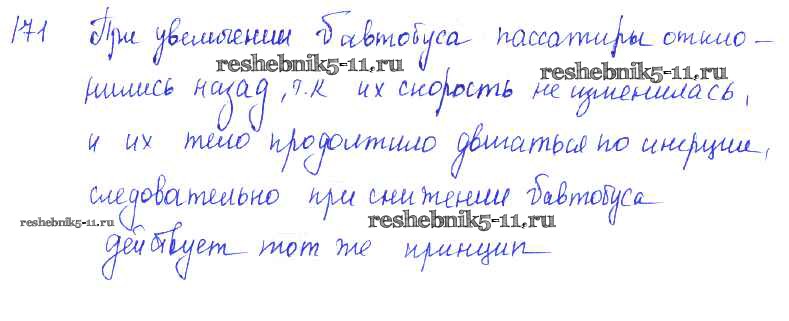 171 При увеличении ϑавтобуса пассажиры откло-
reshebnik5-11.ru
reshebnik5-11.ru
нились назад, т.к их скорость не изменилась,
и их тело продолжило двигаться по инерции,
следовательно при снижении ϑавтобуса
reshebnik5-11.ru
reshebnik5-11.ru
действует тот же принцип